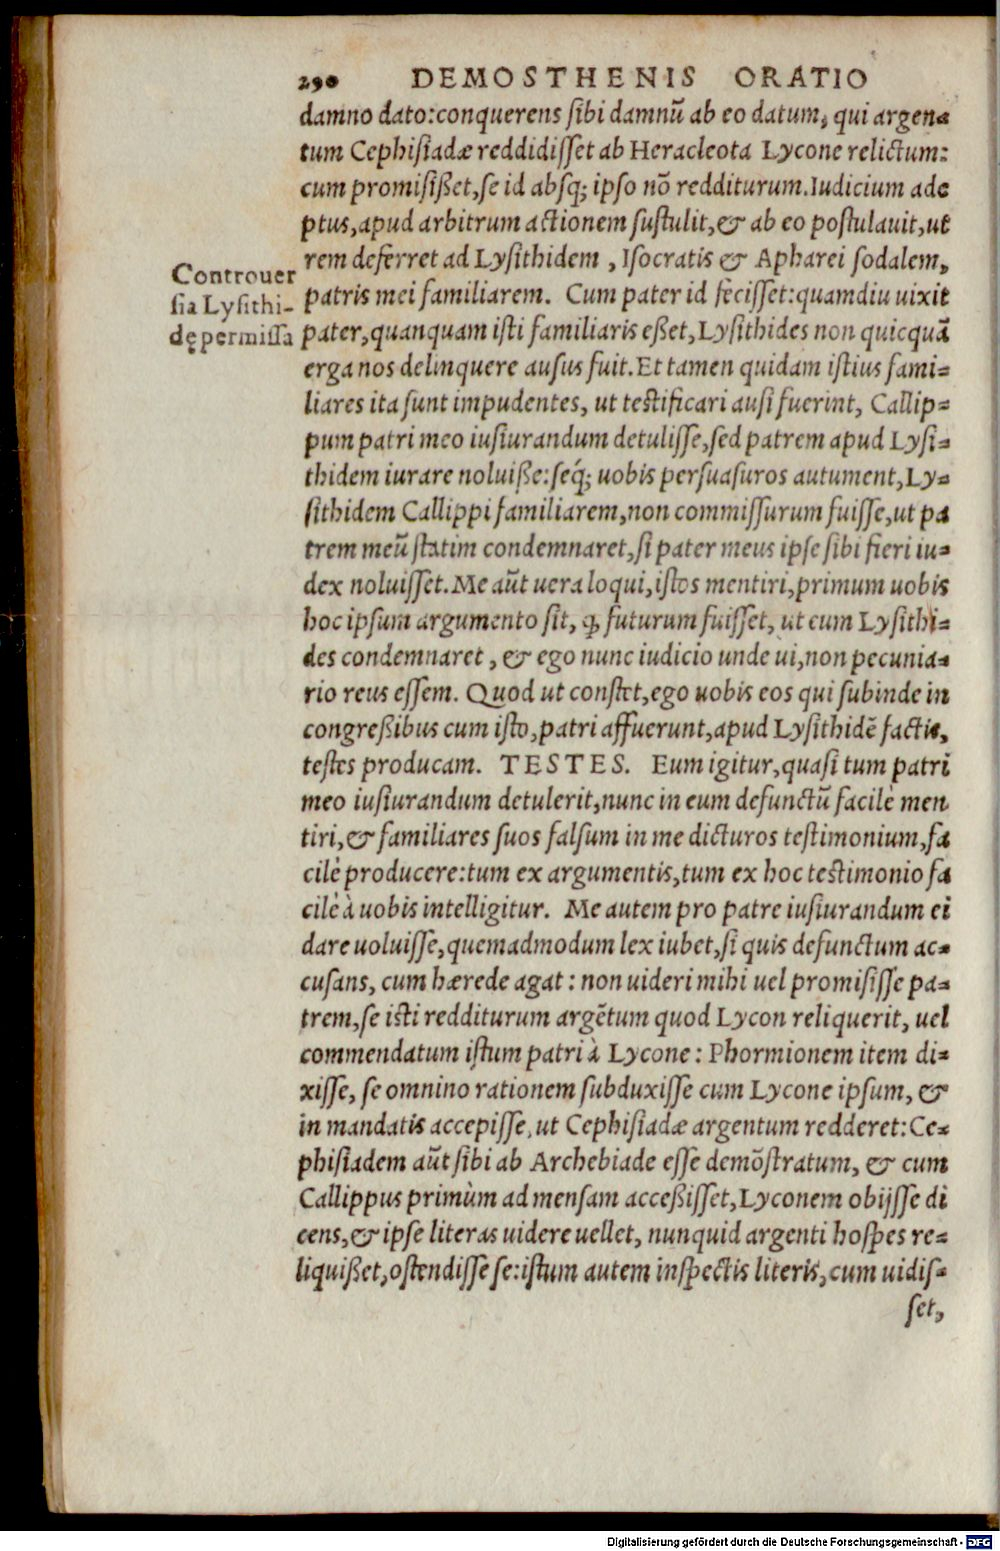 290 DEMOSTHENIS ORATIO
damno dato: conquerens sibi damnū ab eo datum, qui argen-
tum Cephisiadæ reddidisset ab Heracleota Lycone relictum:
cum promisißet, se id absq; ipso nō redditurum. Iudicium ade
ptus, apud arbitrum actionem sustulit, & ab eo postulauit, ut
rem deferret ad Lysithidem, Isocratis & Apharei sodalem,
Controuer
sia Lysithi-
dę permissa
patris mei familiarem. Cum pater id fecisset: quamdiu uixit
pater, quanquam isti familiaris eßet, Lysithides non quicquā
erga nos delinquere ausus fuit. Et tamen quidam istius fami-
liares ita sunt impudentes, ut testificari ausi fuerint, Callip-
pum patri meo iusiurandum detulisse, sed patrem apud Lysi-
thidem iurare noluiße: seq́; uobis persuasuros autument, Ly-
sithidem Callippi familiarem, non commissurum fuisse, ut pa
trem meū statim condemnaret, si pater meus ipse sibi fieri iu-
dex noluisset. Me aūt uera loqui, istos mentiri, primum uobis
hoc ipsum argumento sit, ꝙ futurum fuisset, ut eum Lysithi-
des condemnaret, & ego nunc iudicio unde ui, non pecunia-
rio reus essem. Quod ut constet, ego uobis eos qui subinde in
congreßibus cum isto, patri affuerunt, apud Lysithidē factis,
testes producam. TESTES. Eum igitur, quasi tum patri
meo iusiurandum detulerit, nunc in eum defunctū facilè men
tiri, & familiares suos falsum in me dicturos testimonium, fa
cilè producere: tum ex argumentis, tum ex hoc testimonio fa
cilè à uobis intelligitur. Me autem pro patre iusiurandum ei
dare uoluisse, quemadmodum lex iubet, si quis defunctum ac-
cusans, cum hærede agat: non uideri mihi uel promisisse pa-
trem, se isti redditurum argētum quod Lycon reliquerit, uel
commendatum istum patri à Lycone: Phormionem item di-
xisse, se omnino rationem subduxisse cum Lycone ipsum, &
in mandatis accepisse, ut Cephisiadæ argentum redderet: Ce-
phisiadem aūt sibi ab Archebiade esse demōstratum, & cum
Callippus primùm ad mensam acceßisset, Lyconem obijsse di
cens, & ipse literas uidere uellet, nunquid argenti hospes re-
liquißet, ostendisse se: istum autem inspectis literis, cum uidis-
set,
Digitalisierung gefördert durch die Deutsche Forschungsgemeinschaft - DFG